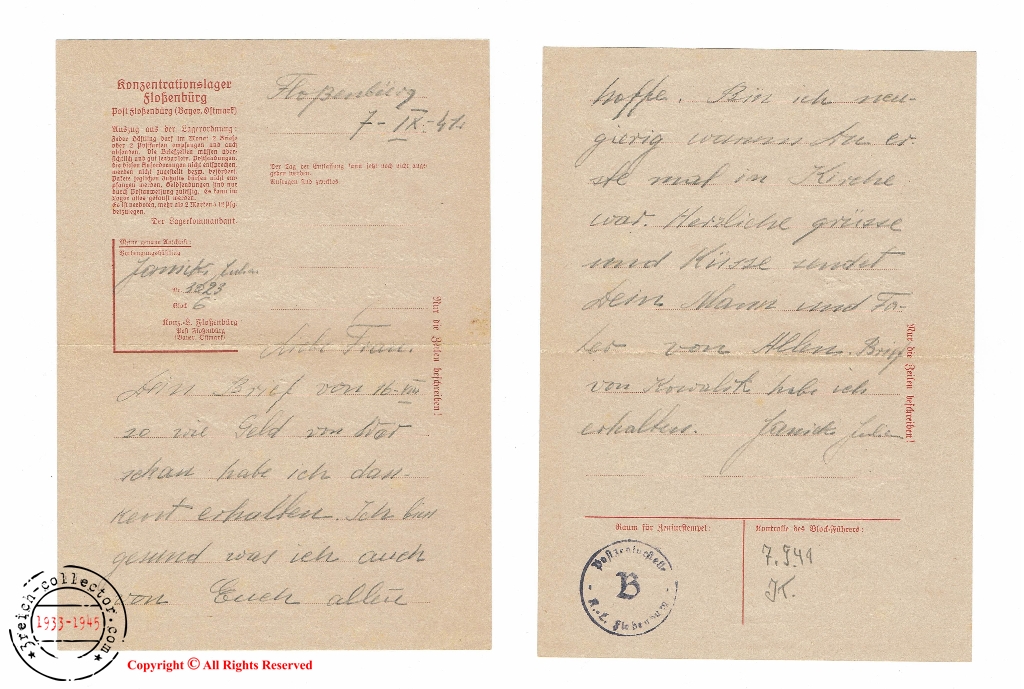 Konzentrationslager
Floßenbürg
Post Floßenbürg (Bayer. Ostmark)
Auszug aus der Lagerordnung:
Jeder Häftling darf im Monat 2 Briefe
oder 2 Postkarten empfangen und auch
absenden. Die Briefzeilen müssen über-
sichtlich und gut lesbar sein. Postsendungen,
die diesen Anforderungen nicht entsprechen,
werden nicht zugestellt bezw. befördert.
Pakete jeglichen Inhalts dürfen nicht em-
pfangen werden. Geldsendungen sind nur
durch Postanweisung zulässig. Es kann im
Lager alles gekauft werden.
Es ist verboten, mehr als 2 Marken à 12 Pfg.
beizulegen.
Der Lagerkommandant.
Floßenbürg
7-IX-41.
Der Tag der Entlassung kann jetzt noch nicht ange-
geben werden.
Anfragen sind zwecklos.
Meine genaue Anschrift:
Janicki
Nr. 3223
Block 6
Konz.-L. Floßenbürg
Post Floßenbürg
(Bayer. Ostmark)
Nur die Zeilen beschreiben!
Liebe Frau.
Dein Brief von 16-VIII
so wie Geld von War
schau habe ich dan-
kent erhalten. Ich bin
gesund was ich auch
von Euch allen
hoffe. Bin ich neu-
gierig wann er-
ste mal in Kirche
war. Herzliche grüsse
und Küsse sendet
Dein Mann und Fa-
ter von Allen. Brief
von Kowalsk habe ich
erhalten. Janicki
Nur die Zeilen beschreiben!
Raum für Zensurstempel:
Postzensurstelle
B
K.-L. Floßenbürg
Kontrolle des Block-Führers:
7.9.41
3reich-collector.com
1933-1945
Copyright © All Rights Reserved